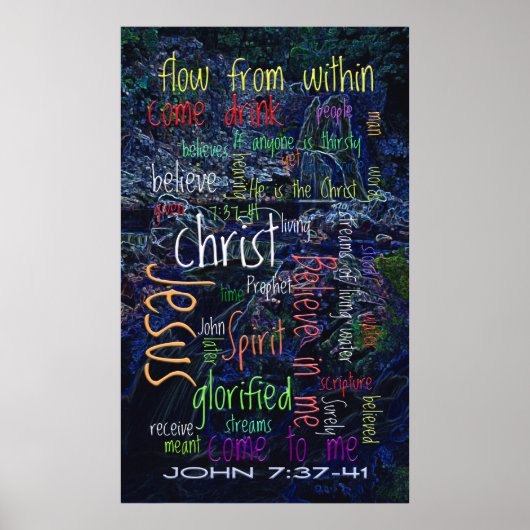 flow from within
come drink
people
man
believes
If anyone is thirsty
yet
hearing
believe
He is the Christ
words
given
7:37-41
living
christ
streams of living water
stood
water
Jesus
Believe in me
time
Prophet
John
later
Spirit
scripture
glorified
Surely
believed
receive
streams
meant
come to me
JOHN 7:37-41